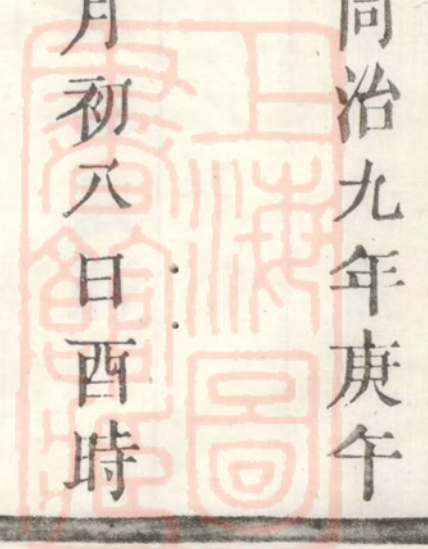 同治九年庚午
月初八日酉時
上海圖
書館藏